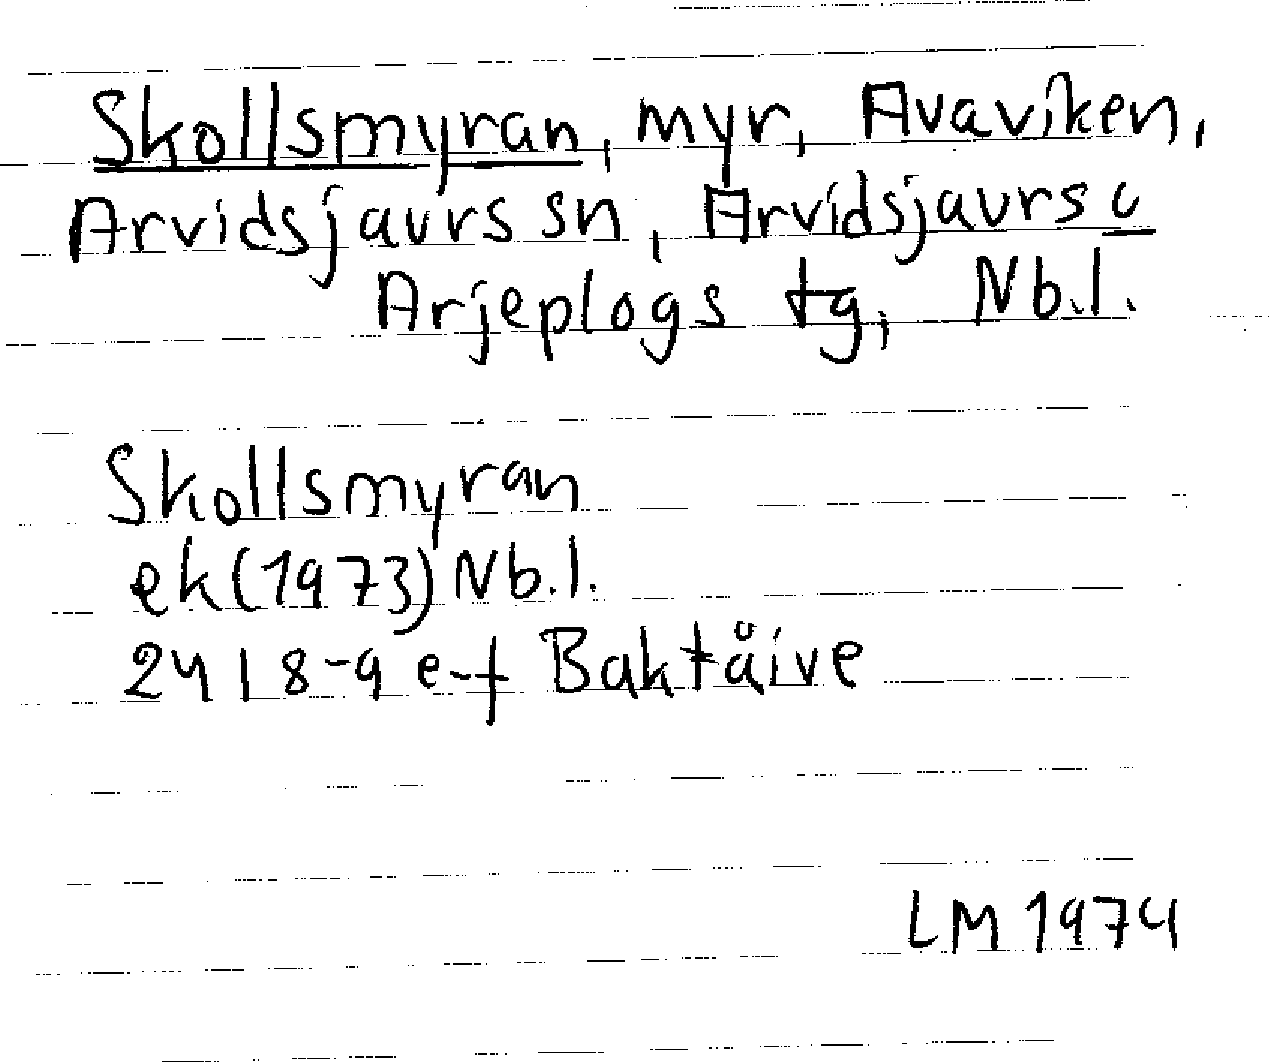 Skollsmyran, myr, Avaviken,
Arvidsjaurs sn, Arvidsjaurs o
Arjeplogs tg, Nb.l.
Skollsmyran
ek(1973) Nb.l.
2418-9 e-f Baktåive
LM 1974